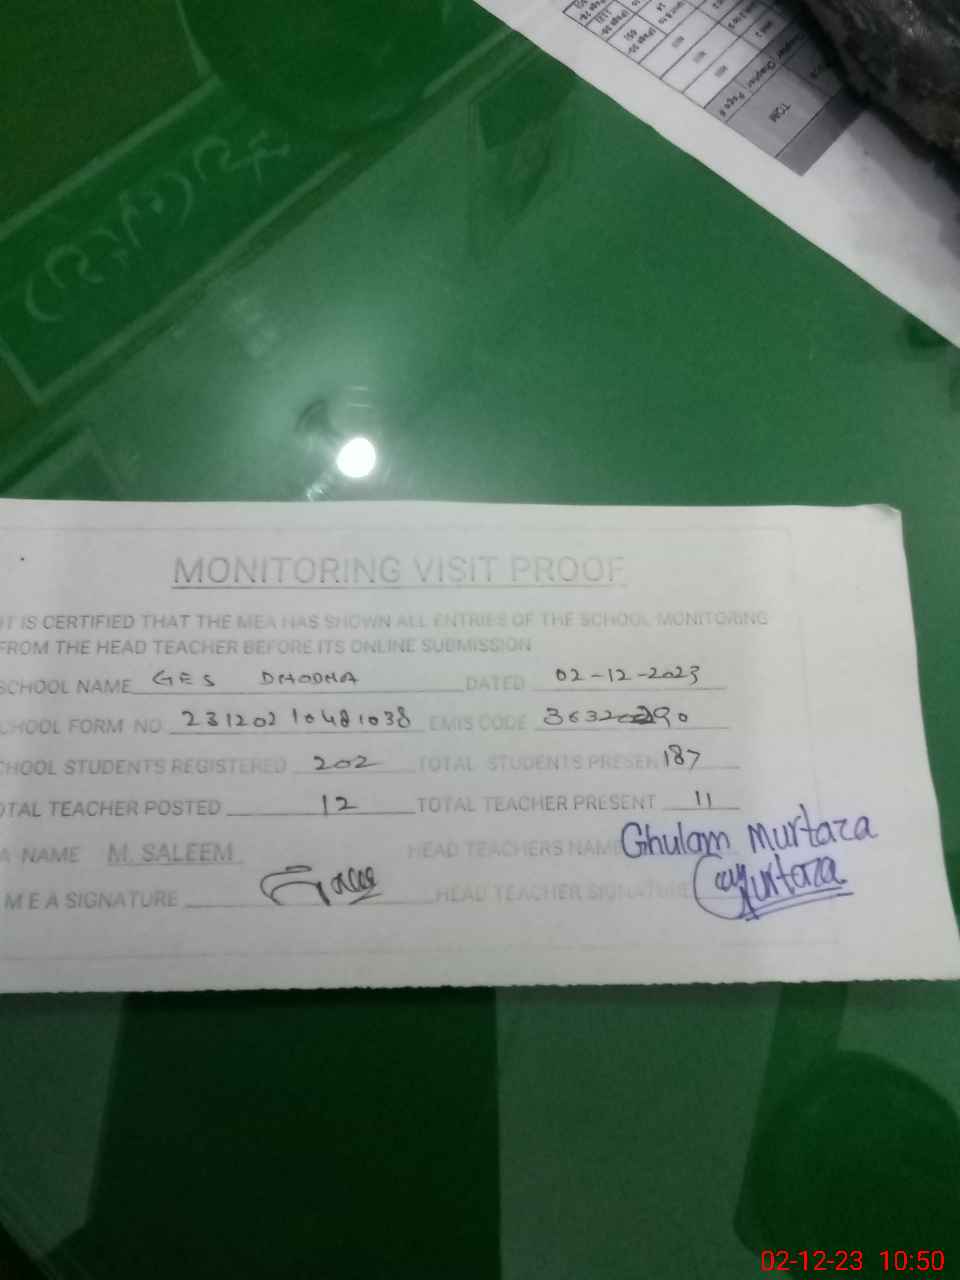 TQM
Chapter
Page #
MONITORING VISIT PROOF
IT IS CERTIFIED THAT THE MEA HAS SHOWN ALL ENTRIES OF THE SCHOOL MONITORING
FROM THE HEAD TEACHER BEFORE ITS ONLINE SUBMISSION
SCHOOL NAME GES DHODHA DATED 02-12-2023
CHOOL FORM NO 23120210481038 EMIS CODE
CHOOL STUDENTS REGISTERED 202 TOTAL STUDENTS PRESEN 187
OTAL TEACHER POSTED 12 TOTAL TEACHER PRESENT 11
A NAME M. SALEEM HEAD TEACHERS NAME Ghulam Murtaza
M E A SIGNATURE HEAD TEACHER SIGNATURE Murtaza
02-12-23 10:50